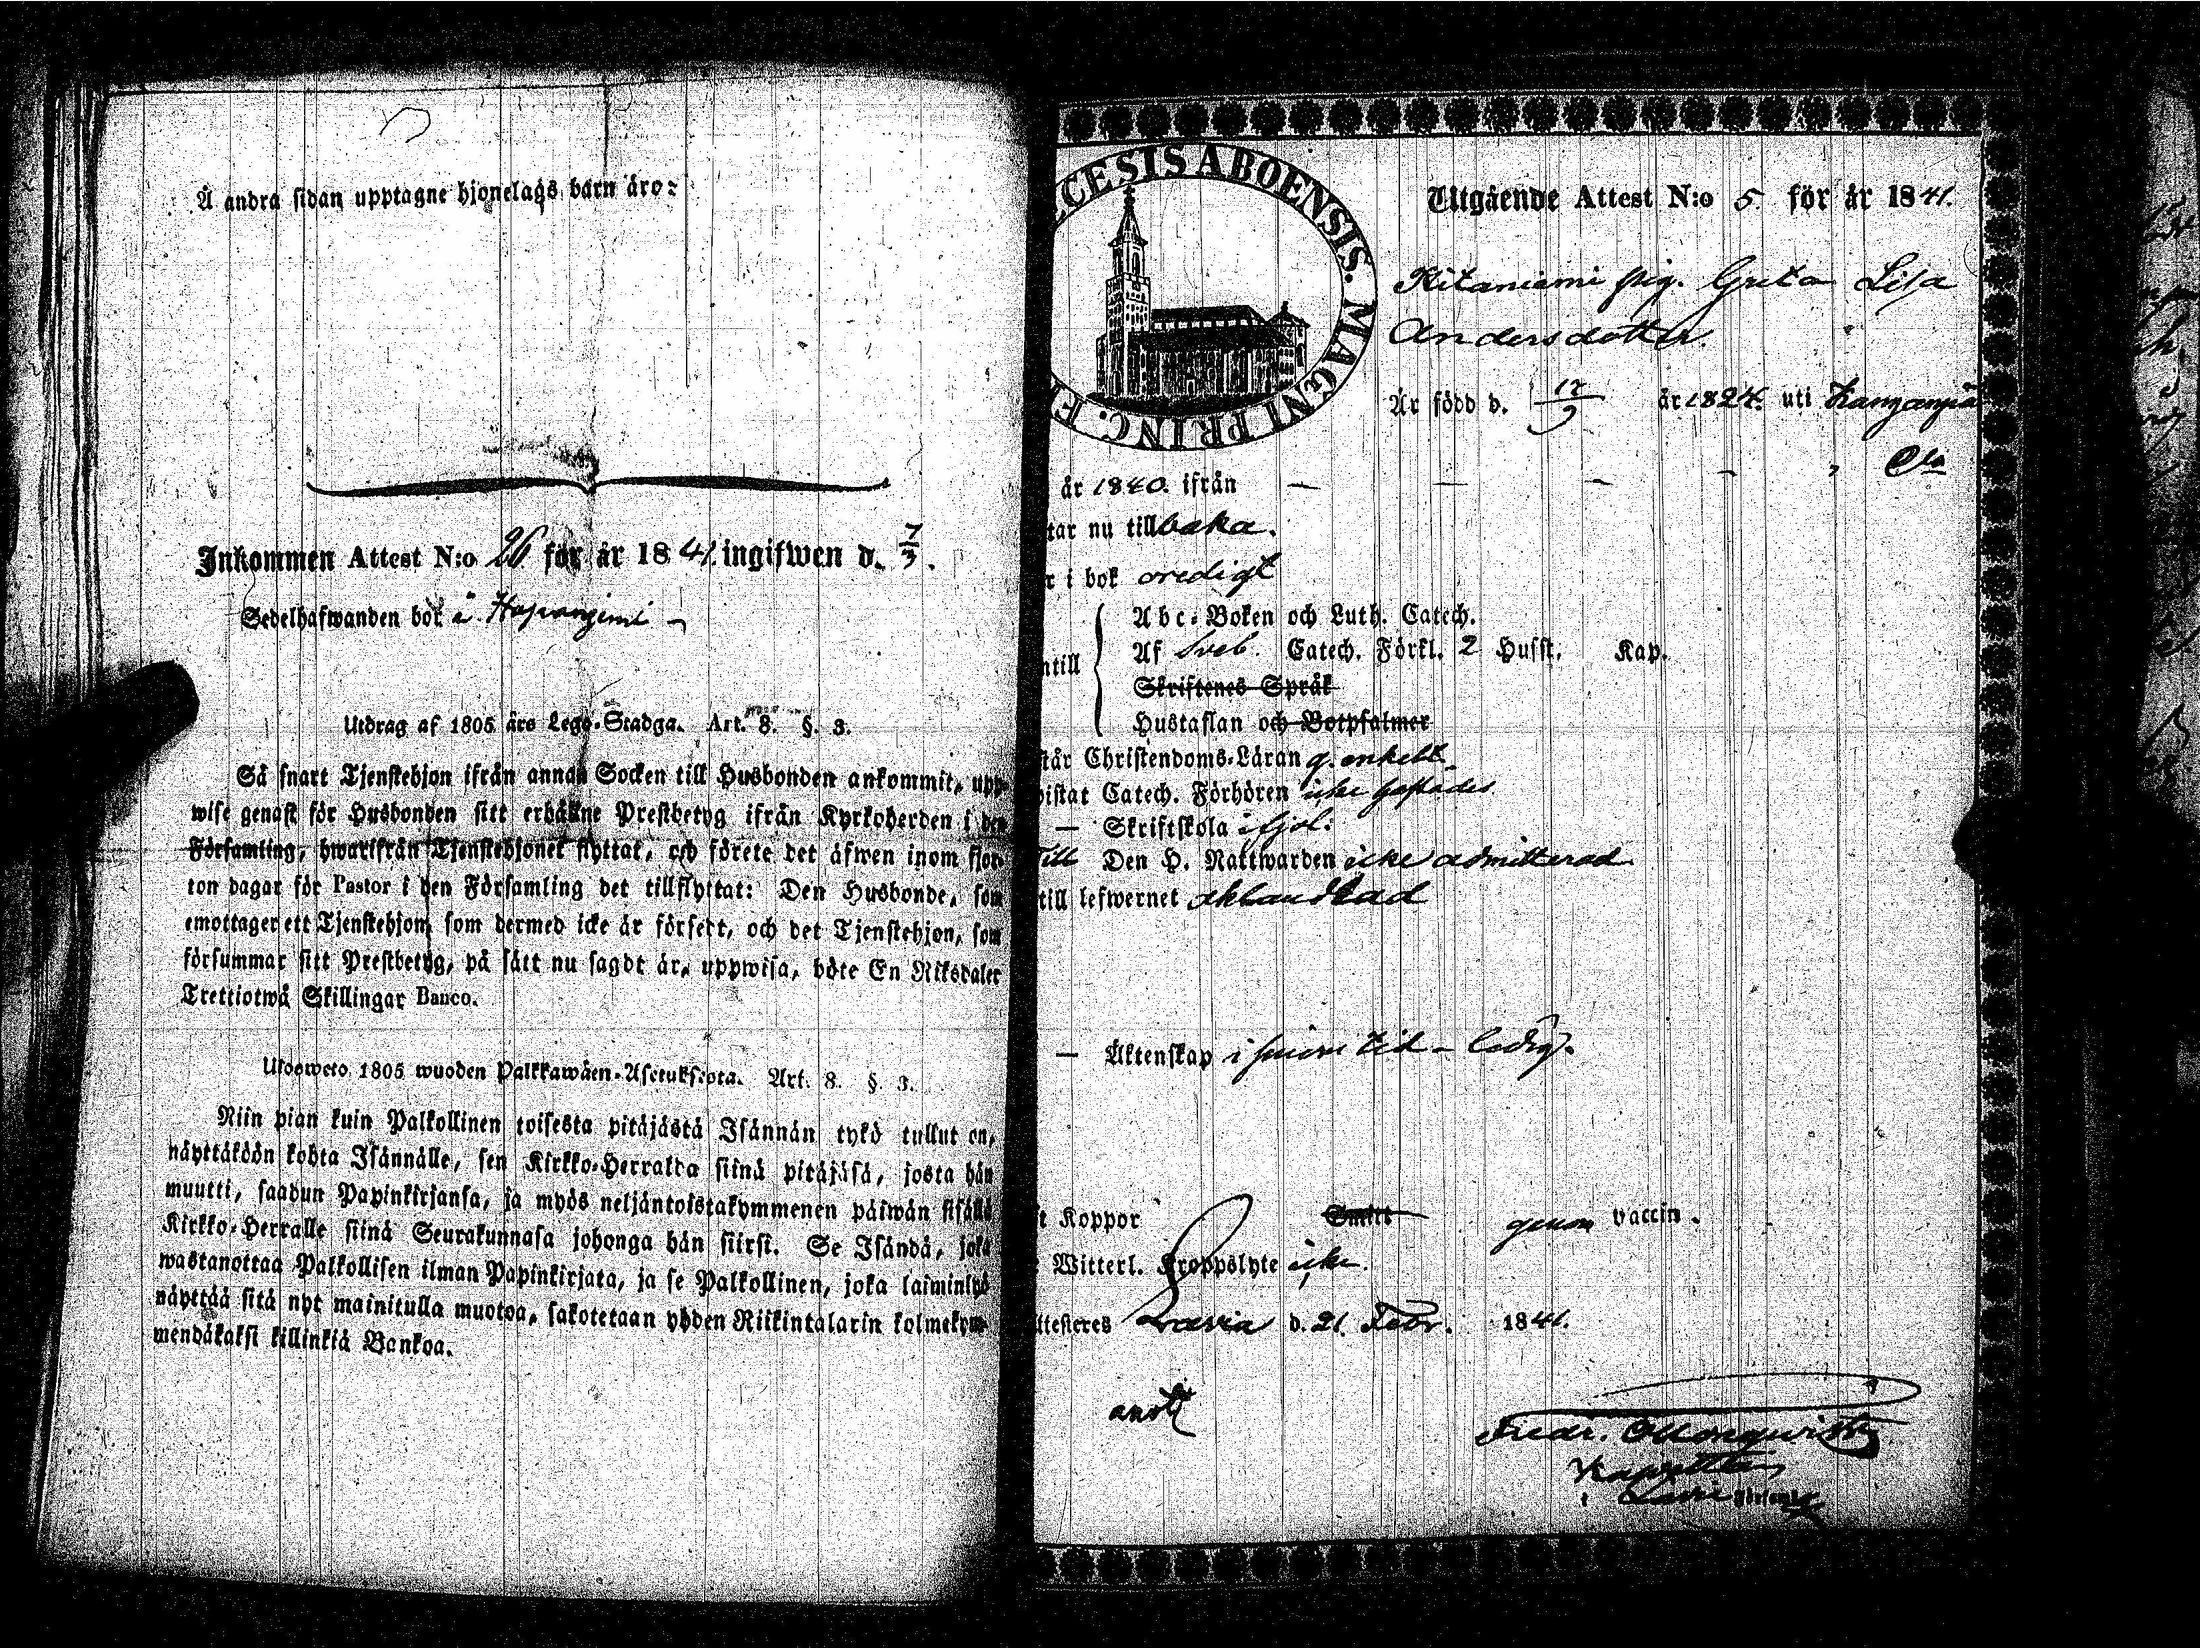 Å andra sidan upptagne hjonelags barn äro:
Inkommen Attest N:o 26 för år 1841. ingifwen d. 7/3.
Sedelhafwanden bor å
Utdrag af 1805 års Lego-Stadga. Art. 8. §. 3.
Så snart Tjenstehjon ifrån annan Socken till Husbonden ankommit, upp-
wise genast för Husbonden sitt erhållne Prestbetyg ifrån Kyrkoherden i den
Församling, hwarifrån Tjenstehjonet flyttat, och förete det äfwen inom fjor-
ton dagar för Pastor i den Församling det tillflyttat: Den Husbonde, som
emottager ett Tjenstehjon, som dermed icke är försedt, och det Tjenstehjon, som
försummar sitt Prestbetyg, på sätt nu sagdt är, uppwisa, böte En Riksdaler
Trettiotwå Skillingar Banco.
Ulosweto 1805 wuoden Palkkawäen-Asetuksesta. Art. 8. §. 3.
Niin pian kuin Palkollinen toisesta pitäjästä Isännän tykö tullut on,
näyttäköön kohta Isännälle, sen Kirkko-Herralta siinä pitäjäsä, josta hän
muutti, saadun Papinkirjansa, ja myös neljäntoistakymmenen päiwän sisällä
Kirkko-Herralle siinä Seurakunnasa johonga hän siirsi. Se Isändä, joka
wastanottaa Palkollisen ilman Papinkirjata, ja se Palkollinen, joka laiminlyö
näyttää sitä nyt mainitulla muotoa, sakotetaan yhden Riikintalarin kolmekym-
mendäkaksi killinkiä Bankoa.
CESIS ABOENSIS. MAGNI PRINC. F
Utgående Attest N:o 5. för år 1841.
Kitaniemi pig. Greta Lisa
Andersdotter.
Är född d. 17/9 år 1824. uti Kanganpää
år 1840. ifrån — — — —
tar nu tillbaka.
r i bok oredigt
Abc-Boken och Luth. Catech.
ntill Af Sveb. Catech. Förkl. 2 Husst. Kap.
Skriftenes Språk
Hustaflan och Botpsalmer
står Christendoms-Läran g. enkelt
istat Catech. Förhören icke
— Skriftskola i fjol:
Till Den H. Nattwarden icke admitterad
till lefwernet oklandrad
— Äktenskap i tid – ledig.
t Koppor Smitt genom vaccin.
Witterl. Kroppslyte icke.
ttesteres Lavia d. 21. Febr. 1841.
Fredr.
Kapellan
i Lavia